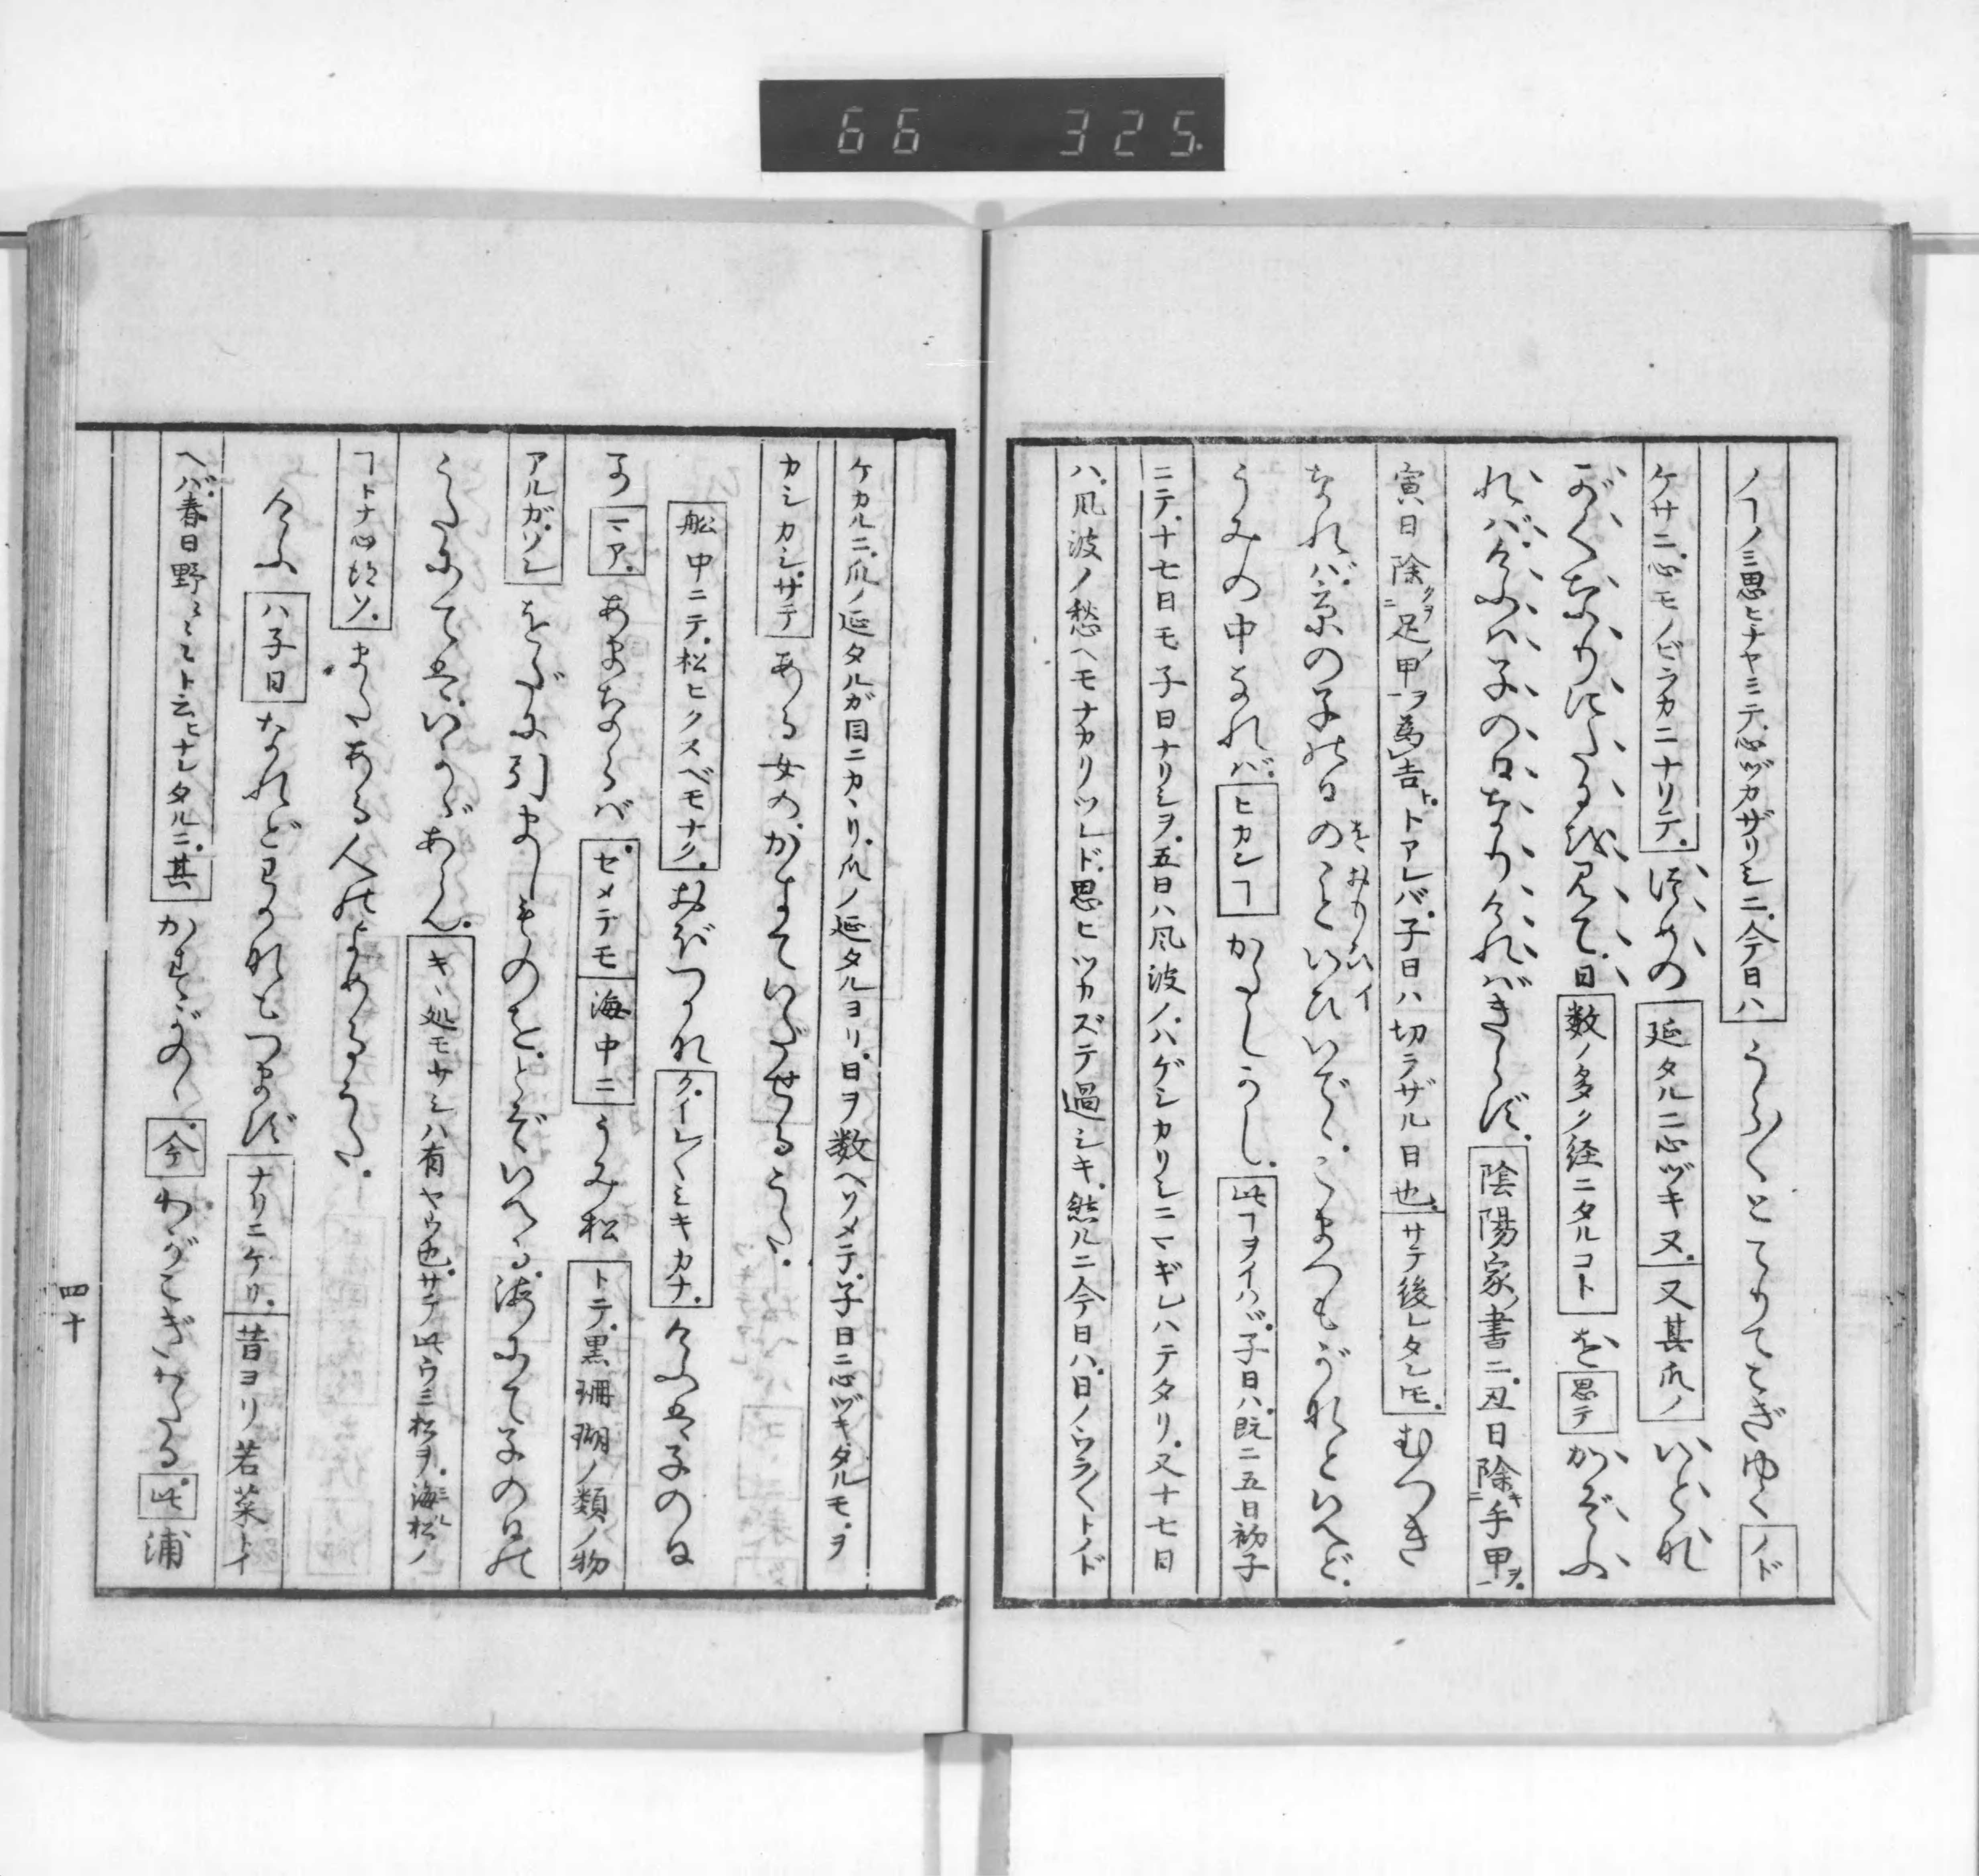 66 325
ノヿノミ思ヒナヤミテ、心ヅカザリシニ、今日ハうら〳〵とてりてこぎゆくノド
ケサニ、心モノビラカニナリテ、つめの延タルニ心ヅキ又、又其爪ノいとな
がくなりにたるを見て、日数ノ多ク経ニタルコトを思テかぞふ
れバけふハ子の日なりけれバきらず、陰陽家ノ書ニ、丑日除キニ手甲ヲ一、
寅日除クヲニ足ノ甲ヲ一為吉ト、トアレバ、子日ハ切ラザル日也、サテ後レタレ𪜈、むつき
なれバ、京の子の日のこといひいでゝ、こまつもがなといへど、
をおもひイ
うみの中なれバ、ヒカンヿかたしかし、此ヿヲイハヾ、子日ハ、既ニ五日初子
ニテ、十七日モ子日ナリシヲ、五日ハ風波ノ、ハゲシカリシニマギレハテタリ、又十七日
ハ、風波ノ愁ヘモナカリツレド、思ヒツカズテ過シキ、然ルニ今日ハ、日ノウラ〳〵トノド
ケカルニ、爪ノ延タルガ目ニカヽリ、爪ノ延タルヨリ、日ヲ数ヘソメテ、子日ニ心ヅキタルモ、ヲ
カシカシ、サテある女のかきていだせるうた、
船中ニテ、松ヒクスベモナク、おぼつかなク、イト〳〵シキカナ、けふは子の日
かマア、あまならバセメテモ海中ニうみ松トテ、黒珊瑚ノ類ノ物
アルガ、ソレをだに引ましものを、とぞいへる、海にて子の日の
うたにては、いかゞあらん、キヽ処モサシハ有ヤウ也、サテ此ウミ松ヲ、海松ミルノ
ヿトナ心得ソ、またある人のよめるうた、
けふハ子日なれどわかなもつまずナリニケリ、昔ヨリ若菜トイ
ヘバ、春日野々々ト云ヒナレタルニ、其かすがのゝ今わがこぎわたる此浦
四十